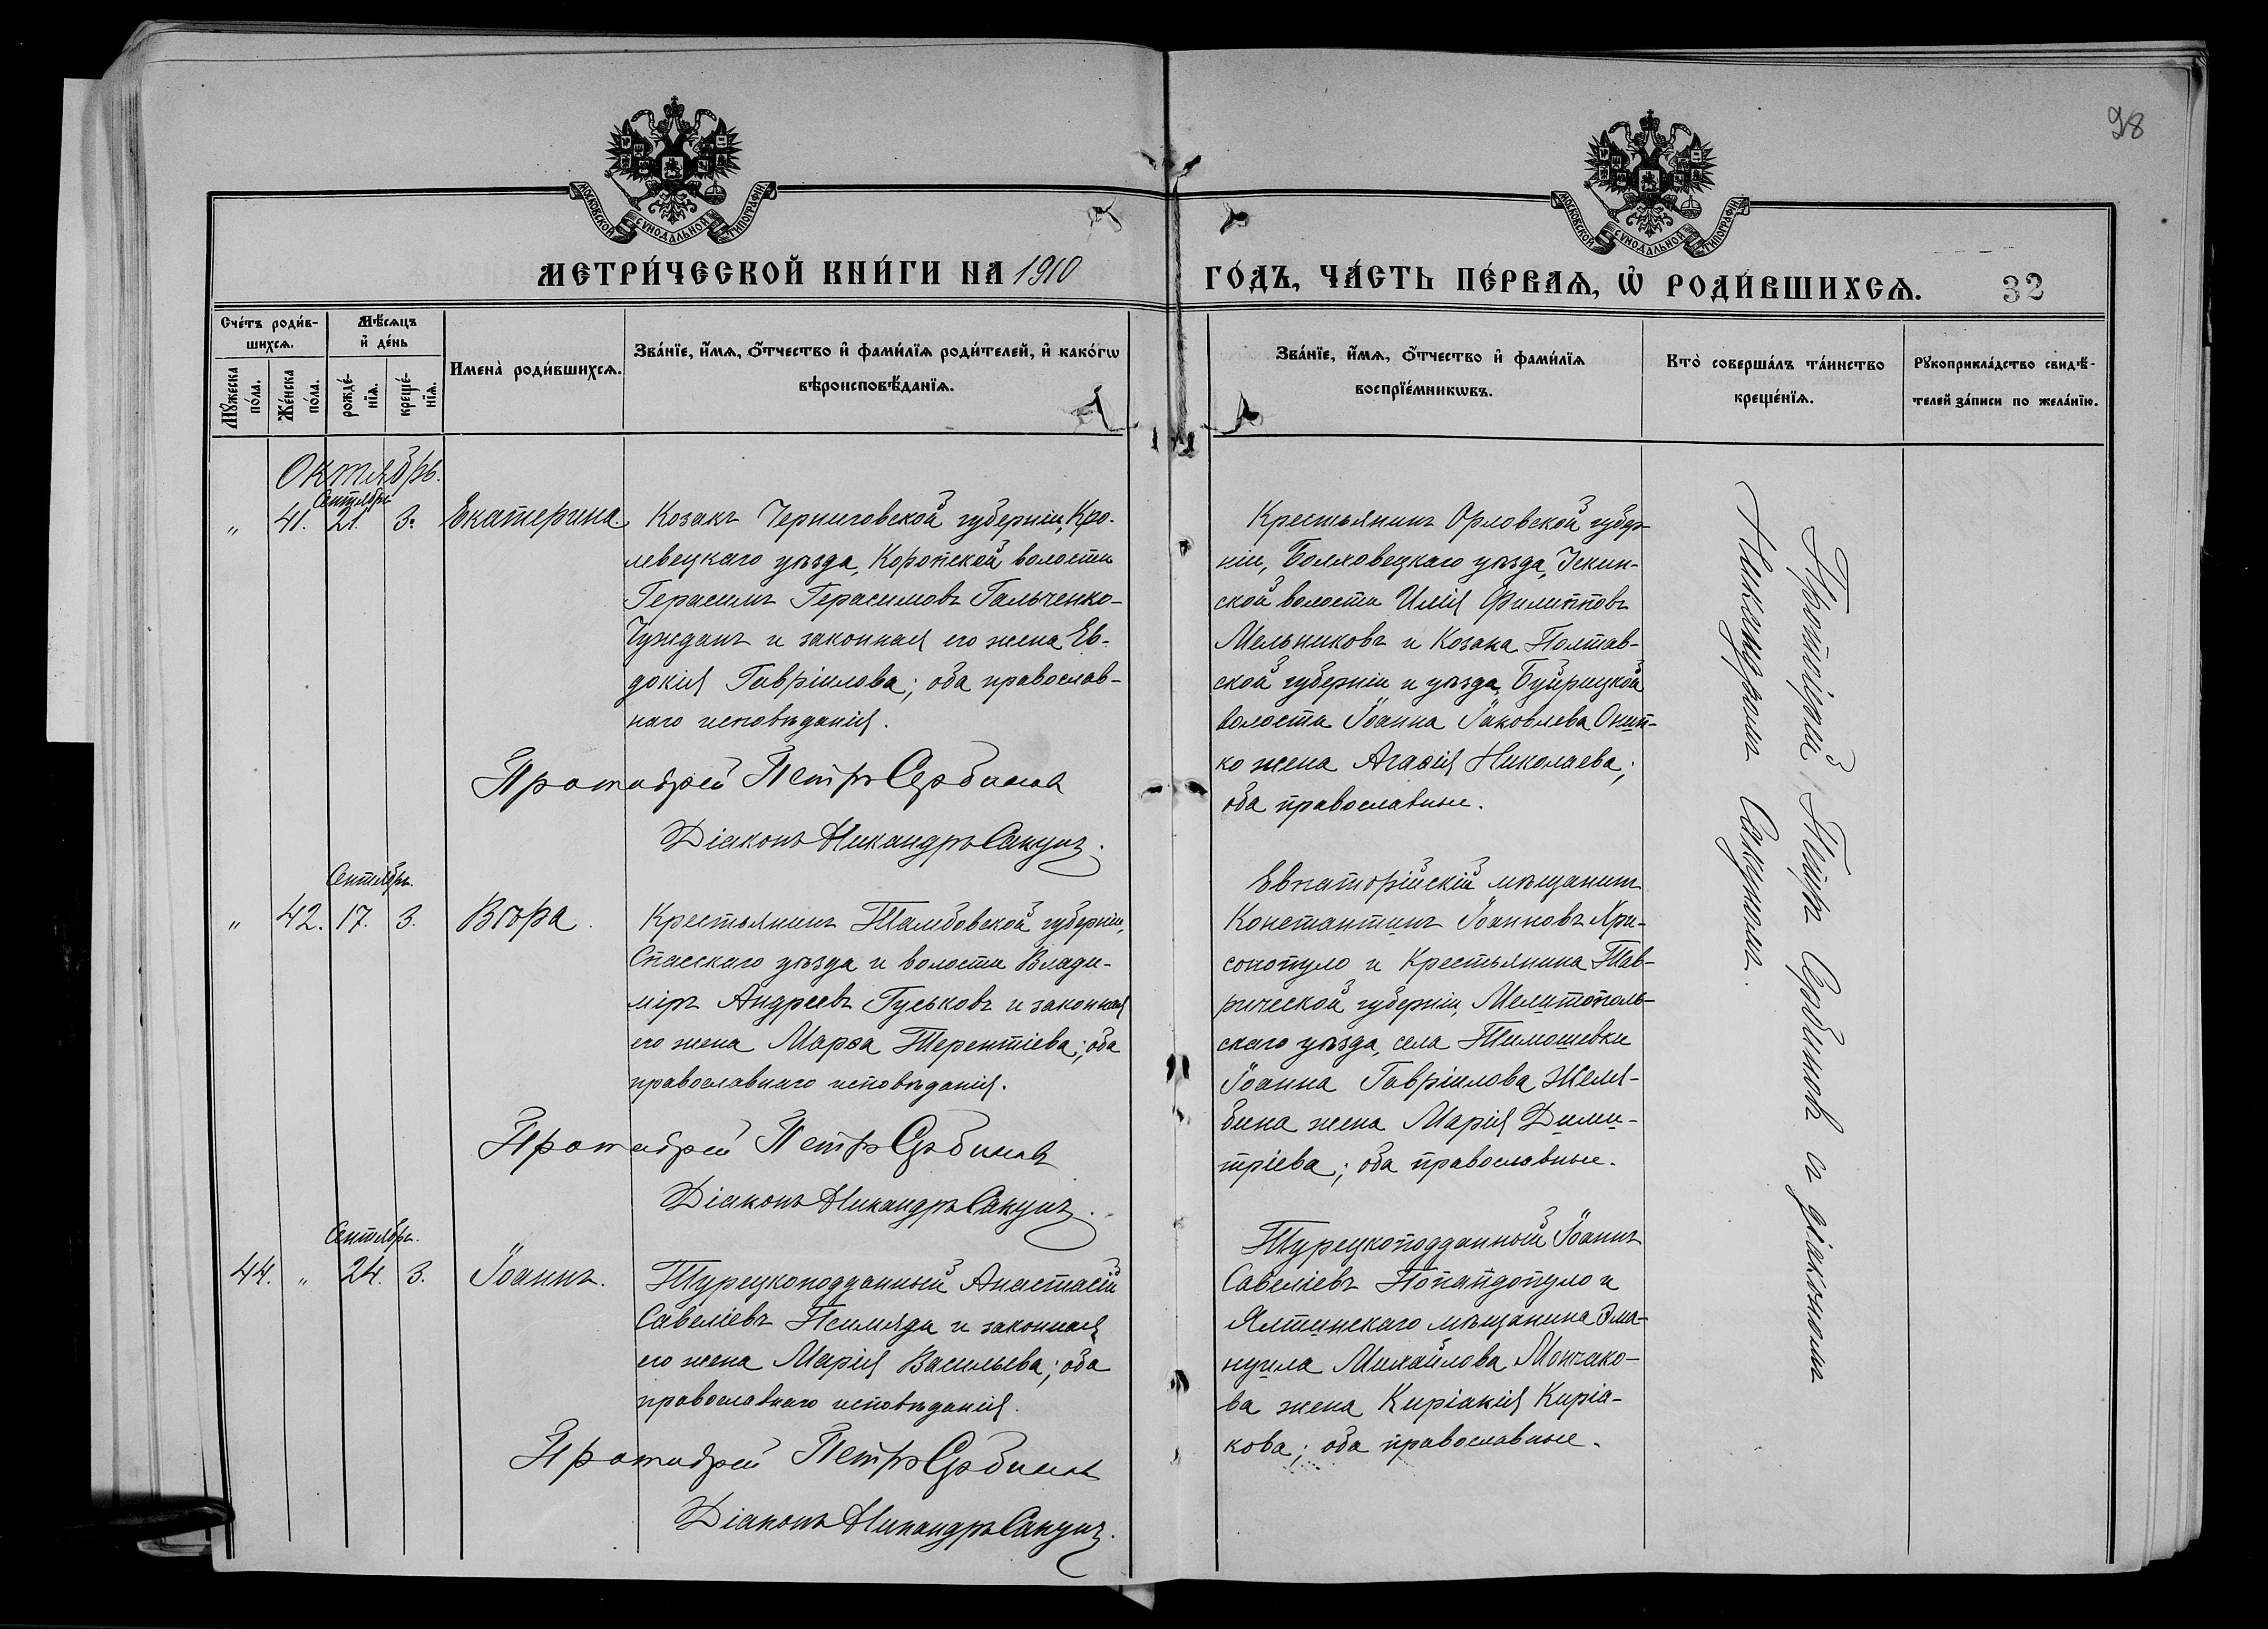 98
МОСКОВСКОЙ СѴНОДАЛЬНОЙ ТИПОГРАФІИ
МОСКОВСКОЙ СѴНОДАЛЬНОЙ ТИПОГРАФІИ
МЕТРИ́ЧЕСКОЙ КНИ́ГИ НА 1910
ГО́ДЪ, ЧА́СТЬ ПЕ́РВАѦ, Ѡ҆ РОДИ́ВШИХСѦ.
32
Сче́тъ роди́в-
шихсѧ.
Мѣ́сѧцъ
и҆ де́нь
Мꙋ́жеска
по́ла.
Же́нска
по́ла.
рожде́-
нїѧ.
креще́-
нїѧ.
Имена̀ роди́вшихсѧ.
Зва́нїе, и҆́мѧ, ѻ҆́тчество и҆ фами́лїѧ роди́телей, и҆ како́гѡ
вѣроисповѣ́данїѧ.
Зва́нїе, и҆́мѧ, ѻ҆́тчество и҆ фами́лїѧ
воспрїе́мникѡвъ.
Кто̀ соверша́лъ та́инство
креще́нїѧ.
Рꙋкоприкла́дство свидѣ́-
телей за́писи по жела́нїю.
Октябрь.
Сентябрь
" 41. 21. 3. Екатерина
Козакъ Черниговской губерніи, Кро-
левецкаго уѣзда, Коропской волости
Герасимъ Герасимовъ Гальченко-
Чужданъ и законная его жена Ев-
докія Гавріилова; оба православ-
наго исповѣданія.
Протоіерей Петръ Сербиновъ
Діаконъ Никандръ Сакунъ.
Крестьянинъ Орловской губер-
ніи, Болховецкаго уѣзда,
ской волости Илія Филипповъ
Мельниковъ и Козака Полтав-
ской губерніи и уѣзда,
волости Іоанна Іаковлева Онип-
ко жена Агаѳія Николаева;
оба православные.
Сентябрь.
" 42. 17. 3. Вѣра.
Крестьянинъ Тамбовской губерніи,
Спасскаго уѣзда и волости Влади-
міръ Андреевъ Гуськовъ и законная
его жена Марѳа Терентіева; оба
православнаго исповѣданія.
Протоіерей Петръ Сербиновъ
Діаконъ Никандръ Сакунъ.
Евпаторійскій мѣщанинъ
Константинъ Іоанновъ Хри-
сопуло и Крестьянина Тав-
рической губерніи, Мелитополь-
скаго уѣзда, села Тимошевки
Іоанна Гавріилова Желя-
бина жена Марія Дими-
тріева; оба православные.
Сентябрь.
44. " 24. 3. Іоаннъ.
Турецкоподданный Анастасій
Савеліевъ и законная
его жена Марія Васильева; оба
православнаго исповѣданія.
Протоіерей Петръ Сербиновъ
Діаконъ Никандръ Сакунъ.
Турецкоподданный Іоаннъ
Савеліевъ Попандопуло и
Ялтинскаго мѣщанина Эма-
нуила Михайлова Мончако-
ва жена Киріакія Киріа-
кова; оба православные.
Протоіерей Петръ Сербиновъ съ діакономъ
Никандромъ Сакуномъ.